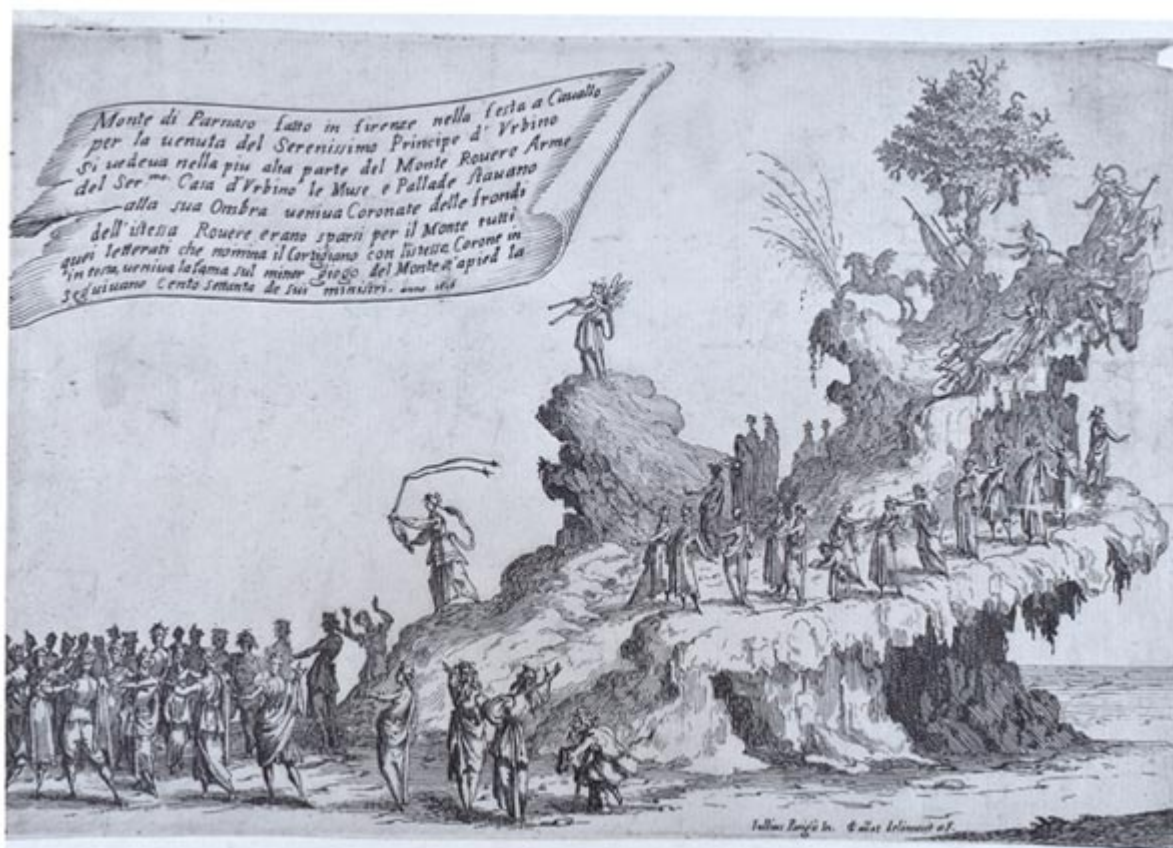 Monte di Parnaso fatto in firenze nella festa a Cauallo
per la uenuta del Serenissimo Principe d' Vrbino
Si uedeua nella piu alta parte del Monte Rouere Arme
del Ser.mo Casa d'Vrbino le Muse e Pallade stauano
alla sua Ombra ueniua Coronate delle frondi
dell'istessa Rouere erano sparsi per il Monte tutti
quei letterati che nomina il Cortigiano con l'istessa Corone in
in testa, ueniua la fama sul minor giogo del Monte a' apied la
seguiuano Cento settanta de sui ministri. anno 1616
Iullius Parigii In. Callot delineauit et F.